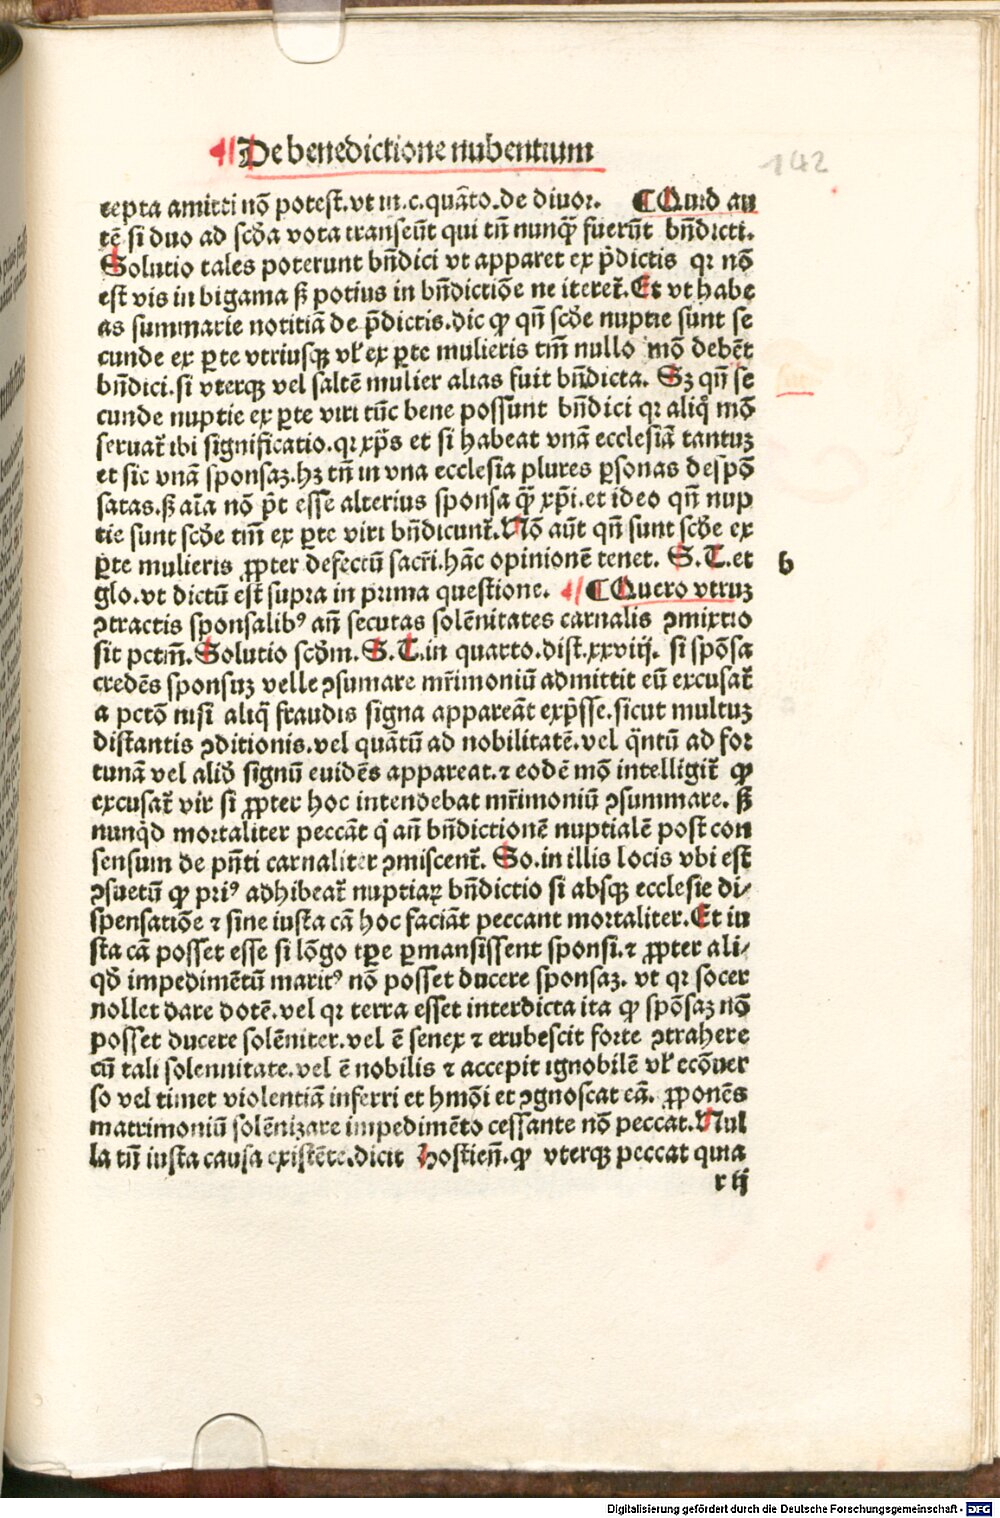 De benedictione nubentium
142
cepta amitti nō potest.vt in.c.quāto.de diuor. ¶ Quid au
tē si duo ad scḋa vota transeūt qui tn̄ nunqꝫ fuerūt bn̄dicti.
Solutio tales poterunt bn̄dici vt apparet ex p̄dictis qꝛ nō
est vis in bigama sꝫ potius in bn̄dictiōe ne iteret᷑. Et vt habe
as summarie notitiā de p̄dictis.dic ꝙ qn̄ scḋe nuptie sunt se
cunde ex ꝑte vtriusqꝫ vl̓ ex ꝑte mulieris tm̄ nullo mō debēt
bn̄dici.si vterqꝫ vel saltē mulier alias fuit bn̄dicta. Sꝫ qn̄ se
cunde nuptie ex ꝑte viri tūc bene possunt bn̄dici qꝛ aliq̇ mō
seruat᷑ ibi significatio.qꝛ xp̄s et si habeat vnā ecclesiā tantuꝫ
et sic vnā sponsaꝫ.hꝫ tn̄ in vna ecclesia plures ꝑsonas despō
satas.sꝫ aīa nō pōt esse alterius sponsa qꝫ xp̄i.et ideo qn̄ nup
tie sunt scḋe tm̄ ex ꝑte viri bn̄dicunt᷑. Nō aūt qn̄ sunt scḋe ex
ꝑte mulieris ꝓpter defectū sacr̄i.hāc opinionē tenet. S.T.et
b
glo.vt dictū est supra in prima questione. ¶ Quero vtruꝫ
ꝯtractis sponsalibꝰ an̄ secutas solēnitates carnalis ꝯmixtio
sit pctm̄. Solutio scḋm. S.T.in quarto.dist.xxviij. si spōsa
credēs sponsuꝫ velle ꝯsumare mr̄imoniū admittit eū excusat᷑
a pctō nisi aliq̄ fraudis signa appareāt exp̄sse.sicut multuꝫ
distantis ꝯditionis.vel quātū ad nobilitatē.vel q̄ntū ad for
tunā vel aliḋ signū euidēs appareat.⁊ eodē mō intelligit᷑ ꝙ
excusat᷑ vir si ꝓpter hoc intendebat mr̄imoniū ꝯsummare. sꝫ
nunqḋ mortaliter peccāt q̇ an̄ bn̄dictionē nuptialē post con
sensum de pn̄ti carnaliter ꝯmiscent᷑. So.in illis locis vbi est
ꝯsuetū ꝙ priꝰ adhibeat᷑ nuptiaꝝ bn̄dictio si absqꝫ ecclesie di⸗
spensatiōe ⁊ sine iusta cā hoc faciāt peccant mortaliter. Et iu
sta cā posset esse si lōgo tꝑe ꝑmansissent sponsi.⁊ ꝓpter ali⸗
qḋ impedimētū maritꝰ nō posset ducere sponsaꝫ. vt qꝛ socer
nollet dare dotē.vel qꝛ terra esset interdicta ita ꝙ spōsaꝫ nō
posset ducere solēniter.vel ē senex ⁊ erubescit forte ꝯtrahere
cū tali solennitate.vel ē nobilis ⁊ accepit ignobilē vl̓ ecōuer
so vel timet violentiā inferri et hmōi et ꝯgnoscat eā. ꝓponēs
matrimoniū solēnizare impedimēto cessante nō peccat. Nul
la tn̄ iusta causa existēte.dicit Hostien̄.ꝙ vterqꝫ peccat quia
r ij
Digitalisierung gefördert durch die Deutsche Forschungsgemeinschaft - DFG